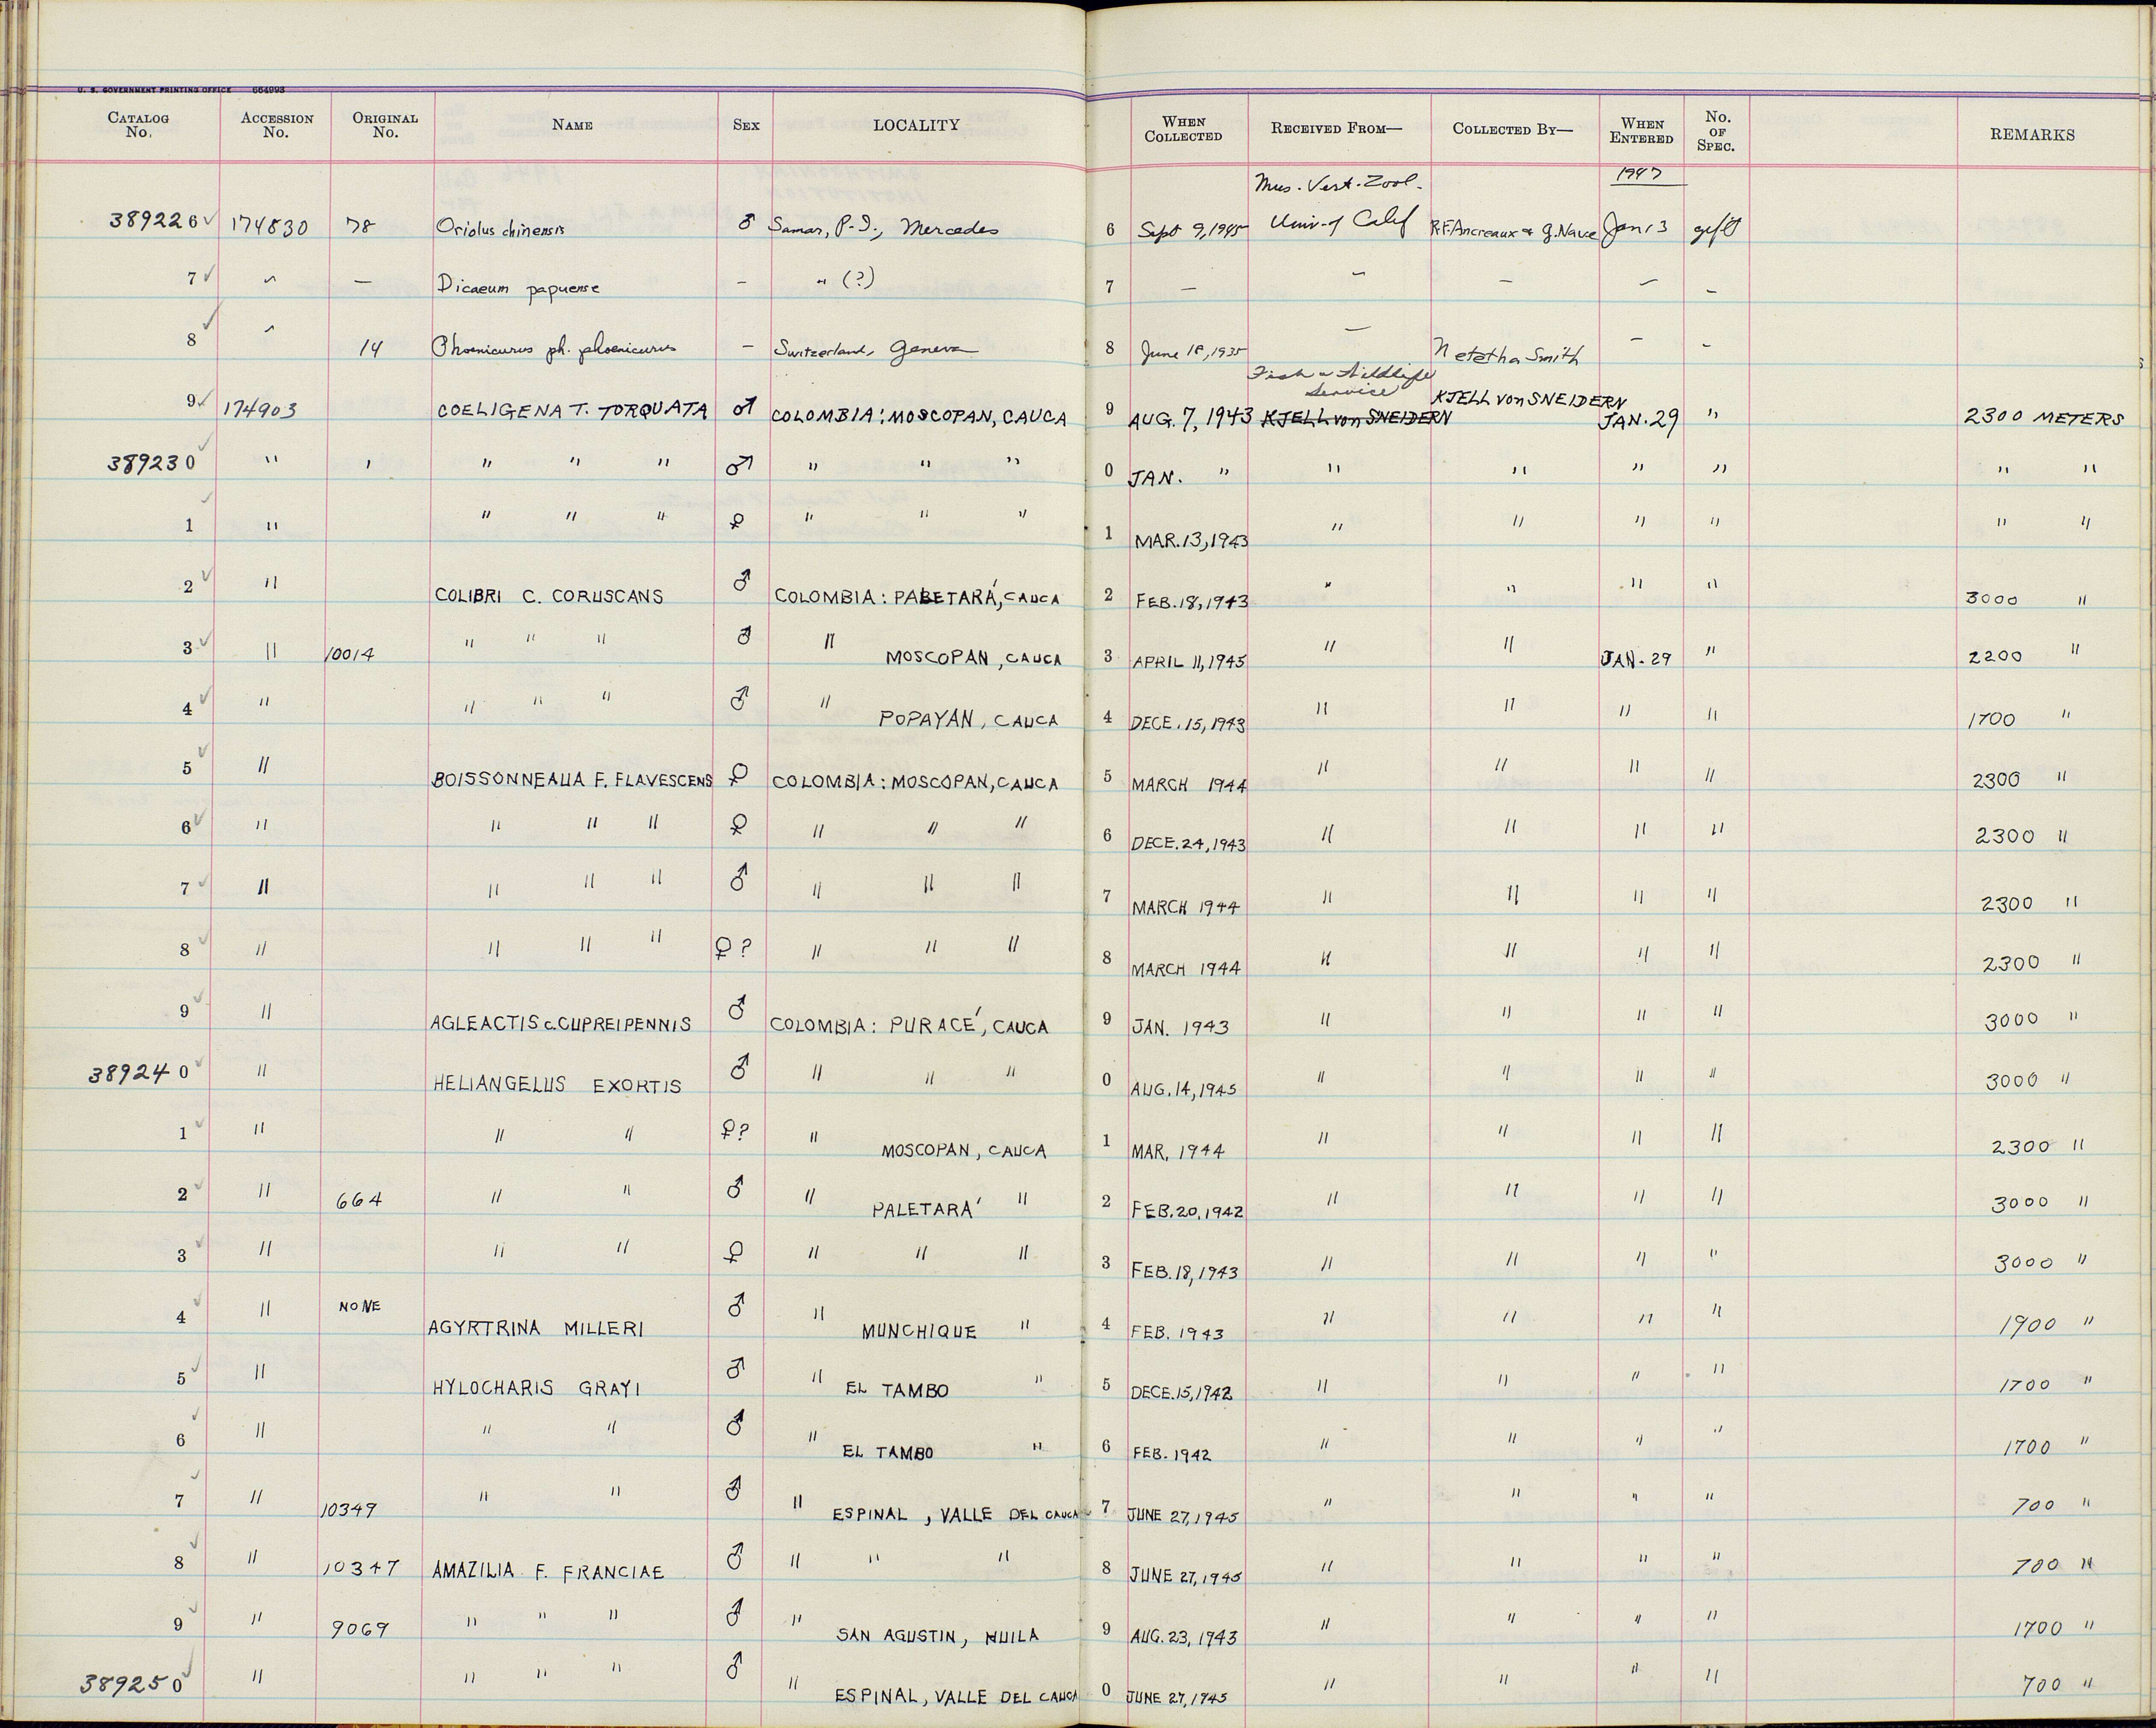 U. S. GOVERNMENT PRINTING OFFICE 664993
CATALOG No. ACCESSION No. ORIGINAL No. NAME SEX LOCALITY WHEN COLLECTED RECEIVED FROM— COLLECTED BY— WHEN ENTERED No. OF SPEC. REMARKS
Mus. Vert. Zool. 1947
389226 ✓ 174830 78 Oriolus chinensis ♂ Samar, P.I., Mercedes 6 Sept 9, 1945 Univ. of Calif Jan 13 gift
7 ✓ " — Dicaeum papuense — " (?) 7 — " — — —
8 ✓ " 14 Phoenicurus ph. phoenicurus — Switzerland, Geneva 8 June 18, 1935 — Netetha Smith — —
Fish & Wildlife Service
9 ✓ 174903 COELIGENA T. TORQUATA ♂ COLOMBIA: MOSCOPAN, CAUCA 9 AUG. 7, 1943 KJELL von SNEIDERN KJELL von SNEIDERN JAN. 29 " 2300 METERS
389230 ✓ " ' " " " ♂ " " " 0 JAN. " " " " " " "
1 ✓ " " " " ♀ " " " 1 MAR. 13, 1943 " " " " " "
2 ✓ " COLIBRI C. CORUSCANS ♂ COLOMBIA: PALETARÁ, CAUCA 2 FEB. 18, 1943 " " " " 3000 "
3 ✓ " 10014 " " " ♂ " MOSCOPAN, CAUCA 3 APRIL 11, 1945 " " JAN. 29 " 2200 "
4 ✓ " " " " ♂ " POPAYAN, CAUCA 4 DECE. 15, 1943 " " " " 1700 "
5 ✓ " BOISSONNEAUA F. FLAVESCENS ♀ COLOMBIA: MOSCOPAN, CAUCA 5 MARCH 1944 " " " " 2300 "
6 ✓ " " " " ♀ " " " 6 DECE. 24, 1943 " " " " 2300 "
7 ✓ " " " " ♂ " " " 7 MARCH 1944 " " " " 2300 "
8 ✓ " " " " ♀? " " " 8 MARCH 1944 " " " " 2300 "
9 ✓ " AGLEACTIS c. CUPREIPENNIS ♂ COLOMBIA: PURACÉ, CAUCA 9 JAN. 1943 " " " " 3000 "
389240 ✓ " HELIANGELUS EXORTIS ♂ " " " 0 AUG. 14, 1945 " " " " 3000 "
1 ✓ " " " ♀? " MOSCOPAN, CAUCA 1 MAR, 1944 " " " " 2300 "
2 ✓ " 664 " " ♂ " PALETARÁ " 2 FEB. 20, 1942 " " " " 3000 "
3 ✓ " " " ♀ " " " 3 FEB. 18, 1943 " " " " 3000 "
4 ✓ " NONE AGYRTRINA MILLERI ♂ " MUNCHIQUE " 4 FEB. 1943 " " " " 1900 "
5 ✓ " HYLOCHARIS GRAYI ♂ " EL TAMBO " 5 DECE. 15, 1942 " " " " 1700 "
6 ✓ " " " ♂ " EL TAMBO " 6 FEB. 1942 " " " " 1700 "
7 ✓ " 10349 " " ♂ " ESPINAL, VALLE DEL CAUCA 7 JUNE 27, 1945 " " " " 700 "
8 ✓ " 10347 AMAZILIA F. FRANCIAE ♂ " " " 8 JUNE 27, 1945 " " " " 700 "
9 ✓ " 9069 " " " ♂ " SAN AGUSTIN, HUILA 9 AUG. 23, 1943 " " " " 1700 "
389250 ✓ " " " " ♂ " ESPINAL, VALLE DEL CAUCA 0 JUNE 27, 1945 " " " " 700 "